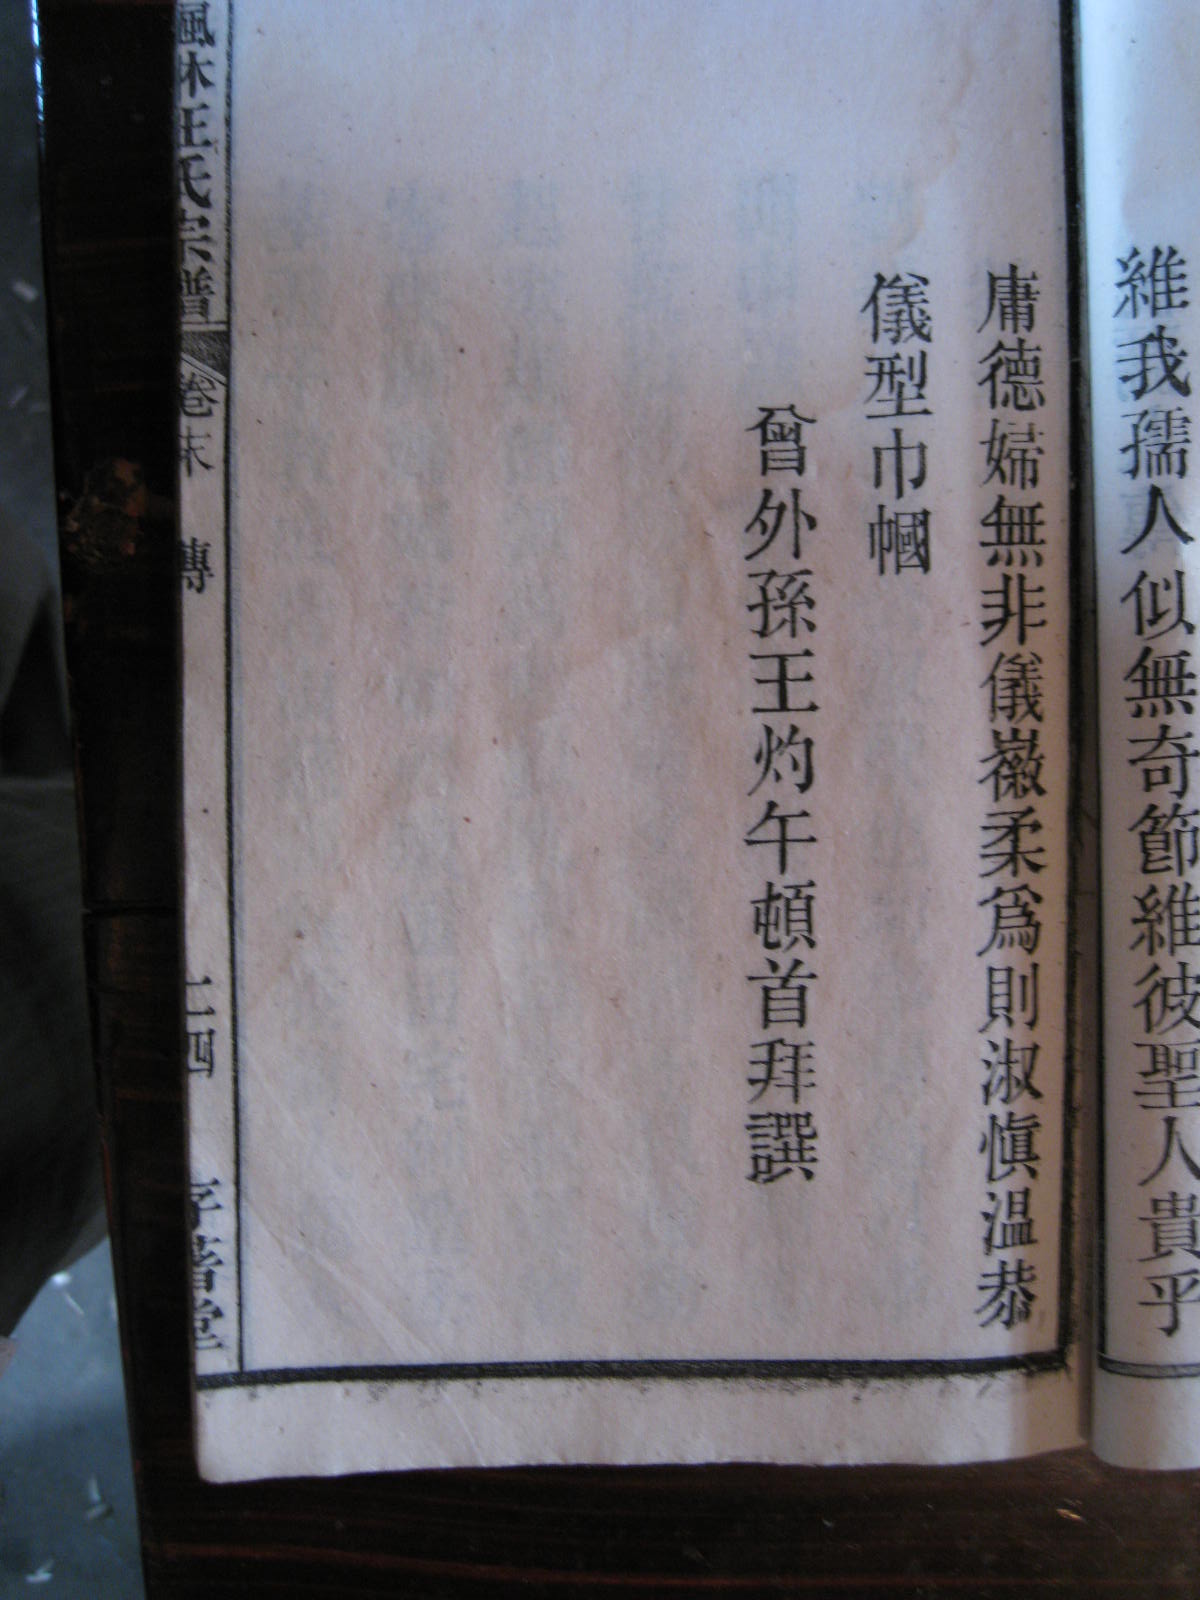 維我孺人似無奇節維彼聖人貴乎
庸德婦無非儀徽柔為則淑愼温恭
儀型巾幗
曾外孫王灼午頓首拜譔
楓林王氏宗譜 卷末 傳 二四 孝著堂